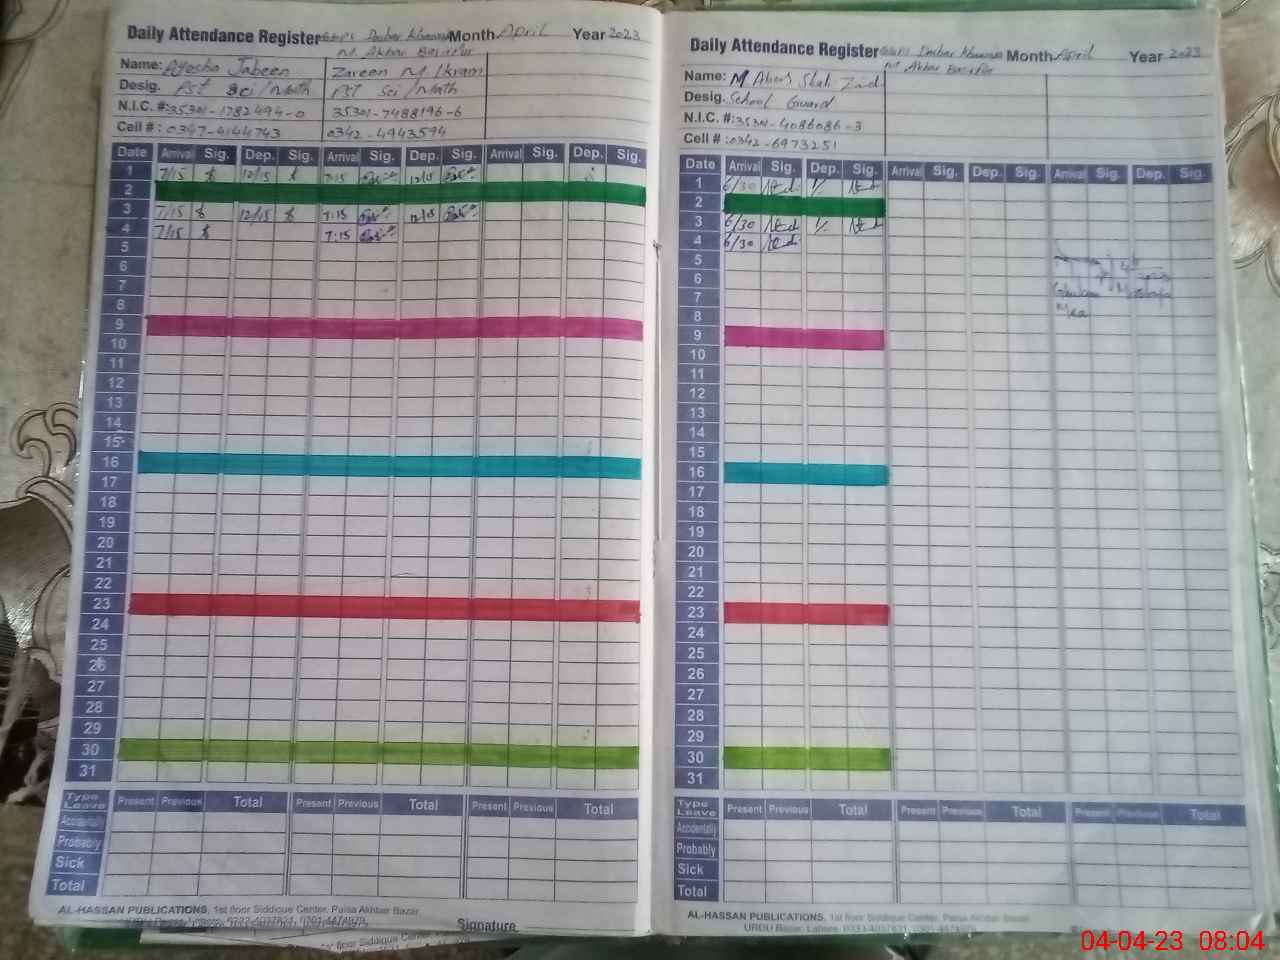 Daily Attendance Register Month April Year 2023
M. Akbar Basirpur
Name: Ayesha Jabeen Zareen M. Ikram
Desig. PST Sci/Math PST Sci/Math
N.I.C. #: 35301-1782494-0 35301-7488196-6
Cell #: 0347-4144743 0342-4943594
Date Arrival Sig. Dep. Sig. Arrival Sig. Dep. Sig. Arrival Sig. Dep. Sig.
1 7/15 12/15 7:15 12:15
2
3 7/15 12/15 7:15 12:15
4 7/15 7:15
5
6
7
8
9
10
11
12
13
14
15
16
17
18
19
20
21
22
23
24
25
26
27
28
29
30
31
Type Leave Present Previous Total Present Previous Total Present Previous Total
Accidentally
Probably
Sick
Total
AL-HASSAN PUBLICATIONS, 1st floor Siddique Center, Paisa Akhbar Bazar
Signature
Daily Attendance Register Month April Year 2023
M. Akbar Basirpur
Name: M
Desig. School Guard
N.I.C. #: 35301-4086086-3
Cell #: 0342-6973251
Date Arrival Sig. Dep. Sig. Arrival Sig. Dep. Sig. Arrival Sig. Dep. Sig.
1 6/30
2
3 6/30
4 6/30
5
6
7
8
9
10
11
12
13
14
15
16
17
18
19
20
21
22
23
24
25
26
27
28
29
30
31
Type Leave Present Previous Total Present Previous Total Present Previous Total
Accidentally
Probably
Sick
Total
AL-HASSAN PUBLICATIONS, 1st floor Siddique Center, Paisa Akhbar Bazar
URDU Bazar, Lahore.
04-04-23 08:04